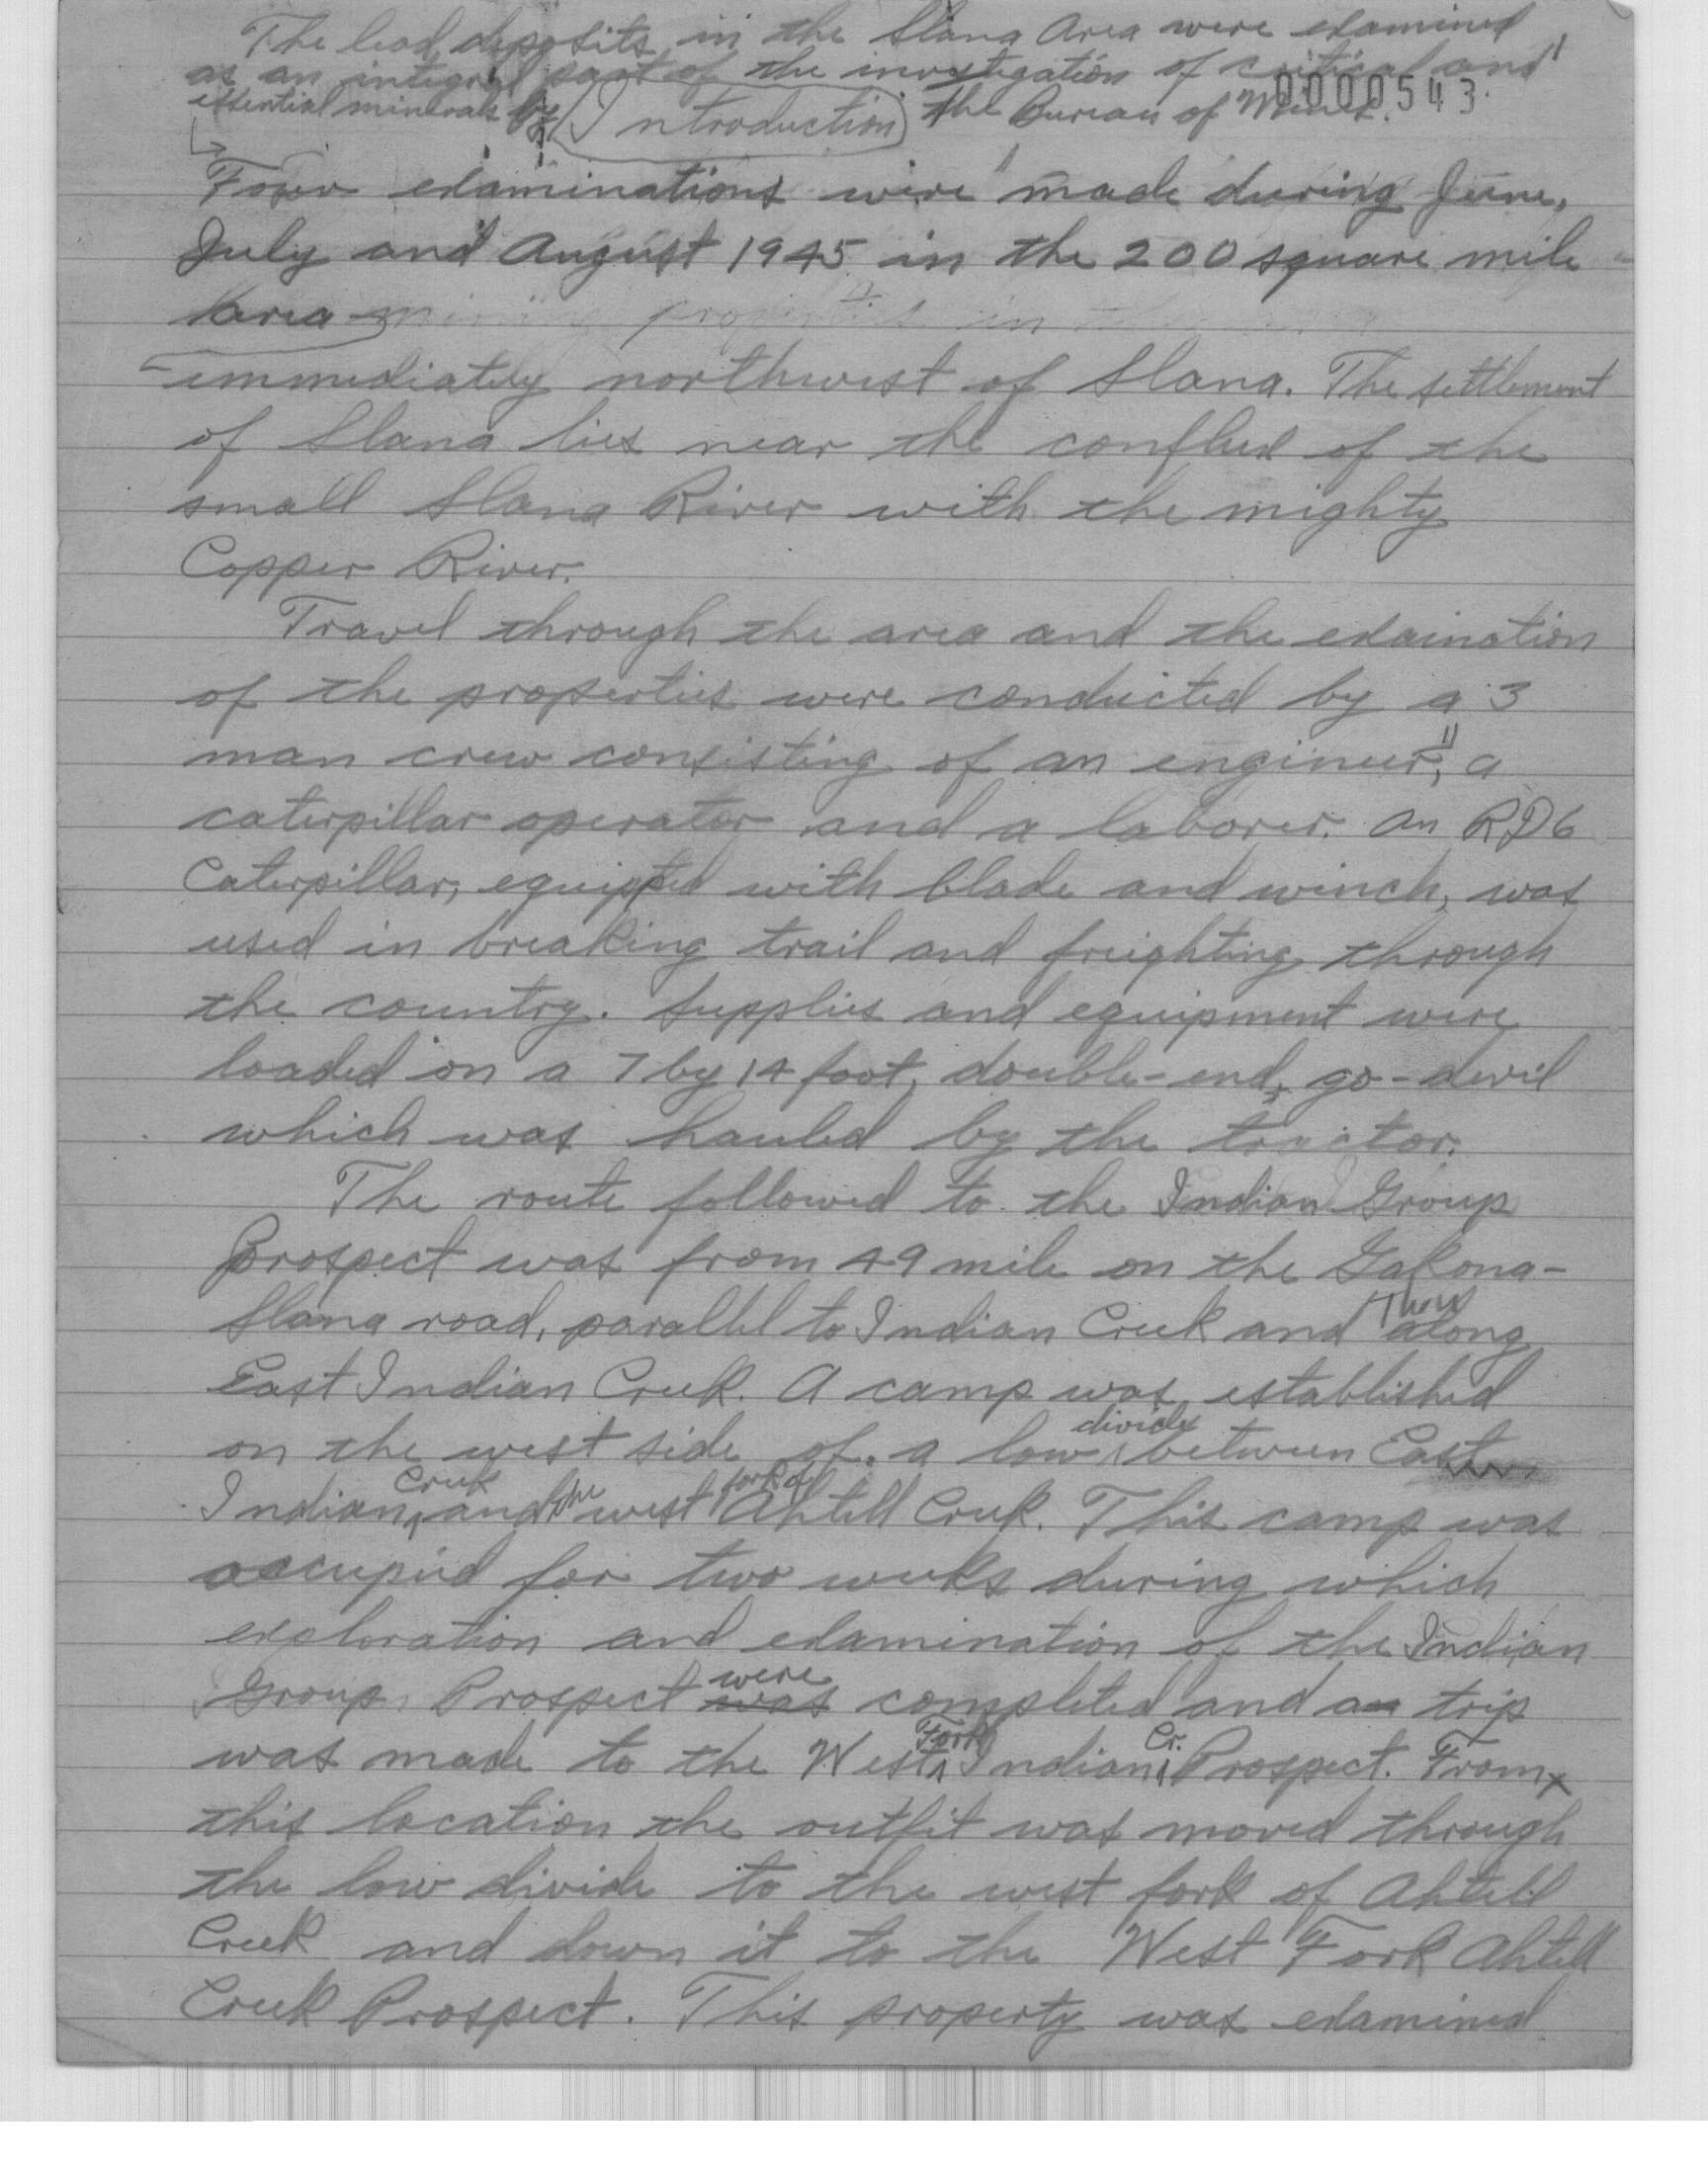 The lead deposits in the Slana Area were examined
as an integral part of the investigation of critical and
essential minerals by the Bureau of Mines.
0000543.
Introduction
Four examinations were made during June,
July and August 1945 in the 200 square mile
area
immediately northwest of Slana. The settlement
of Slana lies near the conflued of the
small Slana River with the mighty
Copper River.
Travel through the area and the exaination
of the properties were conducted by a 3
man crew consisting of an engineer, a
caterpillar operator and a laborer. An RD6
Caterpillar, equipped with blade and winch, was
used in breaking trail and freighting through
the country. Supplies and equipment were
loaded on a 7 by 14 foot, double-end, go-devil
which was hauled by the tractor.
The route followed to the Indian Group
Prospect was from 49 mile on the Gakona-
Slana road, parallel to Indian Creek and then along
East Indian Creek. A camp was established
on the west side of a low divide between East
Indian Creek and the west fork of Ahtell Creek. This camp was
occupied for two weeks during which
exploration and examination of the Indian
Group Prospect was were completed and a trip
was made to the West Fork Indian Cr. Prospect. From
this location the outfit was moved through
the low divide to the west fork of Ahtell
Creek and down it to the West Fork Ahtell
Creek Prospect. This property was examined